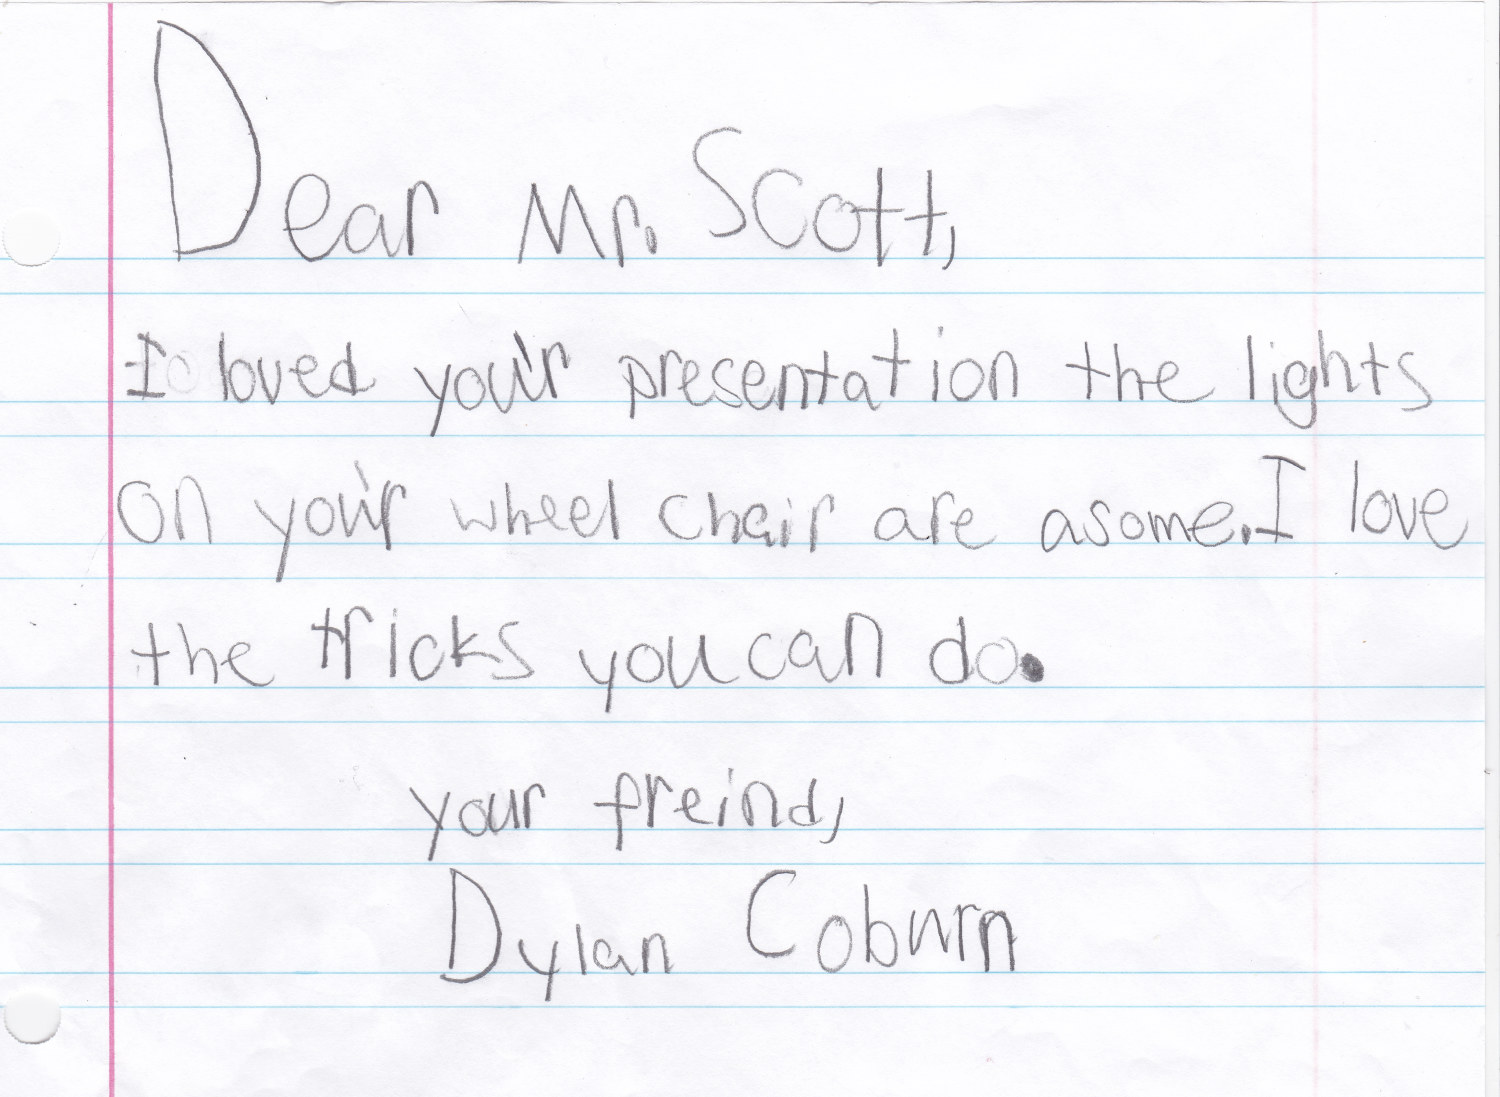 Dear Mr. Scott,
I loved you'r presentation the lights
on you'r wheel chair are asome. I love
the tricks you can do.
your freind,
Dylan Coburn